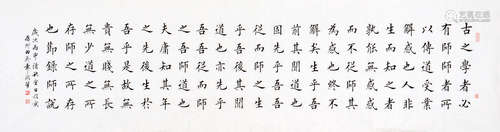 古之學者必
有師師者所
以傳道受業
解惑也人非
生而知之者
孰能無惑惑
而不從師其
為惑也終不
解矣生乎吾
前其聞道也
固先乎吾吾
從而師之生
乎吾後其聞
道也亦先乎
吾吾從而師
之吾師道也
夫庸知其年
之先後生於
吾乎是故無
貴無賤無長
無少道之所
存師之所存
也節錄師說
歲次丙申